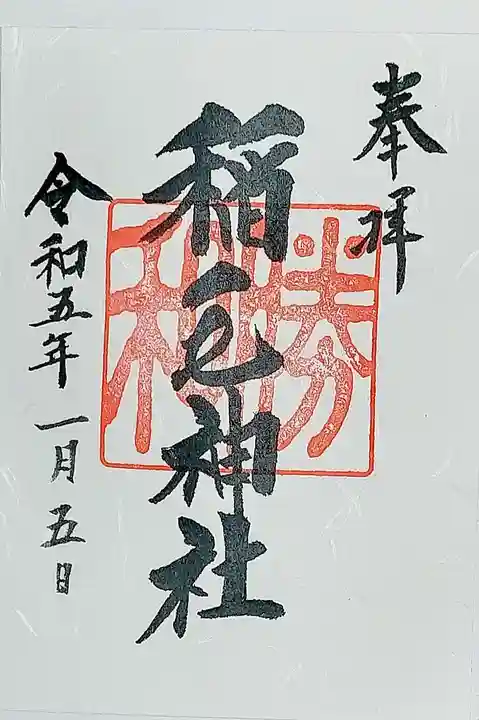 奉拝
稲毛神社
勝和
令和五年一月五日